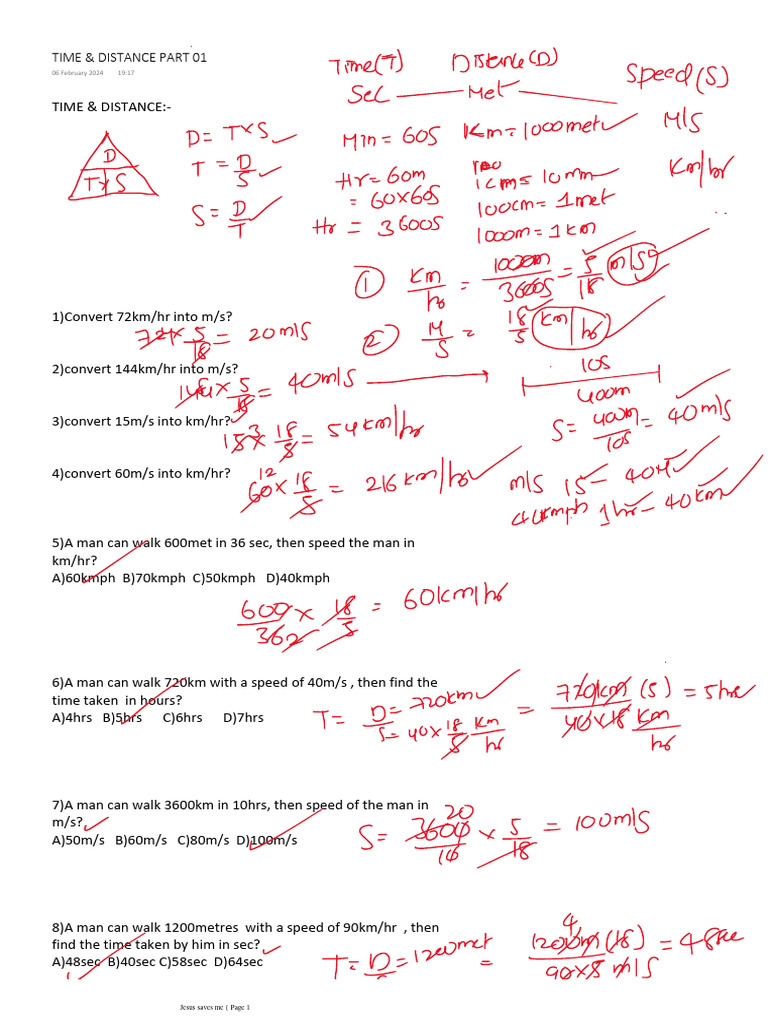 TIME & DISTANCE PART 01
06 February 2024 19:17
Time(T) Distance(D) Speed(S)
Sec Met M/S
TIME & DISTANCE:-
D
T × S
D = T×S
T = D/S
S = D/T
Min = 60S Km = 1000met
Hr = 60m 1cm = 10mm Km/hr
= 60×60S 100cm = 1met
Hr = 3600S 1000m = 1km
① Km/hr = 1000m/3600S = 5/18 m/s
1)Convert 72km/hr into m/s?
72 × 5/18 = 20m/s
② M/S = 18/5 km/hr
2)convert 144km/hr into m/s?
144 × 5/18 = 40m/s
10s
400m
S = 400m/10s = 40m/s
3)convert 15m/s into km/hr?
15 × 18/5 = 54km/hr
3
4)convert 60m/s into km/hr?
12
60 × 18/5 = 216 km/hr
m/s 1s – 40M
40kmph 1hr – 40km
5)A man can walk 600met in 36 sec, then speed the man in
km/hr?
A)60kmph B)70kmph C)50kmph D)40kmph
600/36 × 18/5 = 60km/hr
2
6)A man can walk 720km with a speed of 40m/s , then find the
time taken in hours?
A)4hrs B)5hrs C)6hrs D)7hrs
T = D = 720km / S = 40 × 18/5 km/hr = 720km (5) / 40×18 km/hr = 5hrs
7)A man can walk 3600km in 10hrs, then speed of the man in
m/s?
A)50m/s B)60m/s C)80m/s D)100m/s
20
S = 3600/10 × 5/18 = 100m/s
8)A man can walk 1200metres with a speed of 90km/hr , then
find the time taken by him in sec?
A)48sec B)40sec C)58sec D)64sec
4
T = D = 1200met = 1200m (18) / 90×5 m/s = 48sec
Jesus saves me ( Page 1